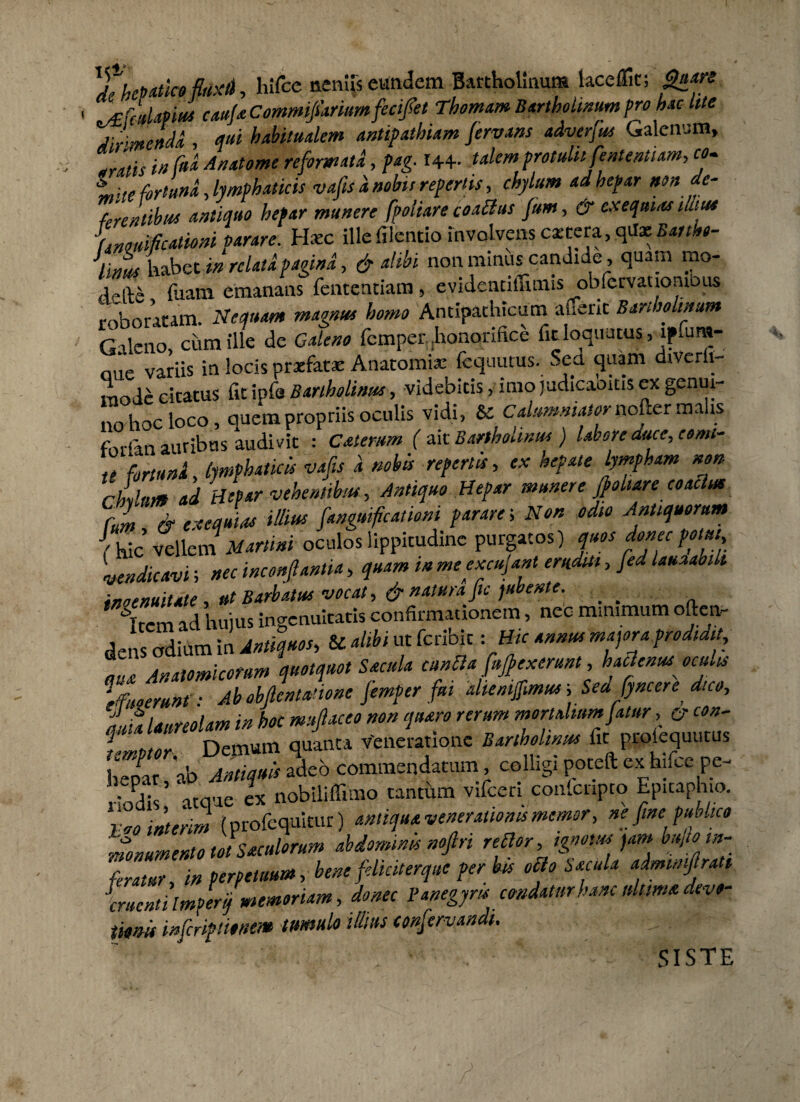 152
de hepatico fluxû, hifce neniis eundem Bartholinum laceſſit; Quare
Æſculapius cauſæ Commiſſarium feciſſet Thomam Bartholinum pro hac lite
dirimendâ, qui habitualem antipathiam ſervans adverſus Galenum,
gratis in ſuâ Anatome reformatâ, pag. 144. talem protulit ſententiam, co-
mite fortunâ, lymphaticis vaſis à nobis repertis, chylum ad hepar non de-
ferentibus antiquo hepar munere ſpoliare coactus ſum, & exequias illius
ſanguificationi parare. Hæc ille ſilentio involvens cætera, quæ Bartho-
linus habet in relatâ paginâ, & alibi non minùs candidè, quàm mo-
deſtè, ſuam emanans ſententiam, evidentiſſimis obſervationibus
roboratam. Nequam magnus homo Antipathicum aſſerit Bartholinum
Galeno, cùm ille de Galeno ſemper honorificè ſit loquutus, ipſum-
que variis in locis præfatæ Anatomiæ ſequutus. Sed quàm diverſi-
modè citatus ſit ipſe Bartholinus, videbitis, imo judicabitis ex genui-
no hoc loco, quem propriis oculis vidi, & Calumniator noſter malis
forſan auribus audivit : Cæterum (ait Bartholinus) labore duce, comi-
te fortunâ, lymphaticis vaſis à nobis repertis, ex hepate lympham non
Chylum ad Hepar vehentibus, Antiquo Hepar munere ſpoliare coactus
ſum, & exequias illius ſanguificationi parare; Non odio Antiquorum
(hîc vellem Martini oculos lippitudine purgatos) quos donec potui,
vendicavi; nec inconſtantia, quam in me excuſant eruditi, ſed laudabili
ingenuitate, ut Barbatus vocat, & naturâ ſic jubente.
Item ad hujus ingenuitatis confirmationem, nec minimum oſten-
dens odium in Antiquos, & alibi ut ſcribit : Hic annus majora prodidit,
quæ Anatomicorum quotquot Sæcula cuncta ſuſpexerunt, hactenus oculis
effugerunt : Ab obſtentatione ſemper fui alieniſſimus; Sed ſyncere dico,
quia laureolam in hoc muſtaceo non quæro rerum mortalium ſatur, & con-
temptor. Demum quanta veneratione Bartholinus ſit proſequutus
hepar, ab Antiquis adeò commendatum, colligi poteſt ex hiſce pe-
riodis, atque ex nobiliſſimo tantùm viſceri conſcripto Epitaphio.
Ego interim (proſequitur) antiquæ venerationis memor, ne ſine publico
monumento tot Sæculorum abdominis noſtri rector, ignotus jam buſto in-
feratur, in perpetuum, bene feliciterque per bis octo Sæcula adminiſtrati
cruenti Imperij memoriam, donec Panegyris condatur hanc ultimæ devo-
tionis inſcriptionem tumulo illius conſervandi.
SISTE